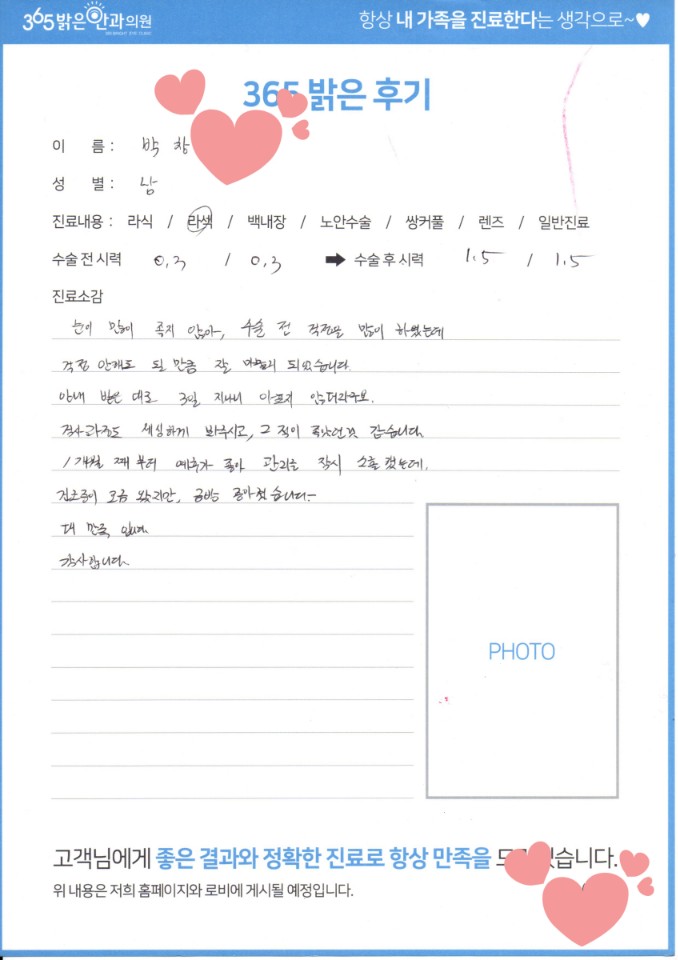 365밝은안과의원
항상 내 가족을 진료한다는 생각으로~♥
365 밝은 후기
이 름 : 박 창
성 별 : 남
진료내용 : 라식 / 라섹 / 백내장 / 노안수술 / 쌍커풀 / 렌즈 / 일반진료
수술 전 시력 0.3 / 0.3 ➡ 수술 후 시력 1.5 / 1.5
진료소감
눈이 많이 좋지 않아, 수술 전 걱정을 많이 하였는데
걱정 안해도 될 만큼 잘 마무리 되었습니다.
안내 받은 대로 3일 지나니 아프지 않더라구요.
검사과정도 세심하게 봐주시고, 그 점이 좋았던것 같습니다.
1개월 째부터 예후가 좋아 관리는 잠시 소홀 했는데,
건조증이 조금 왔지만, 금방 좋아졌습니다~
대 만족 입니다.
감사합니다.
PHOTO
고객님에게 좋은 결과와 정확한 진료로 항상 만족을
위 내용은 저희 홈페이지와 로비에 게시될 예정입니다.